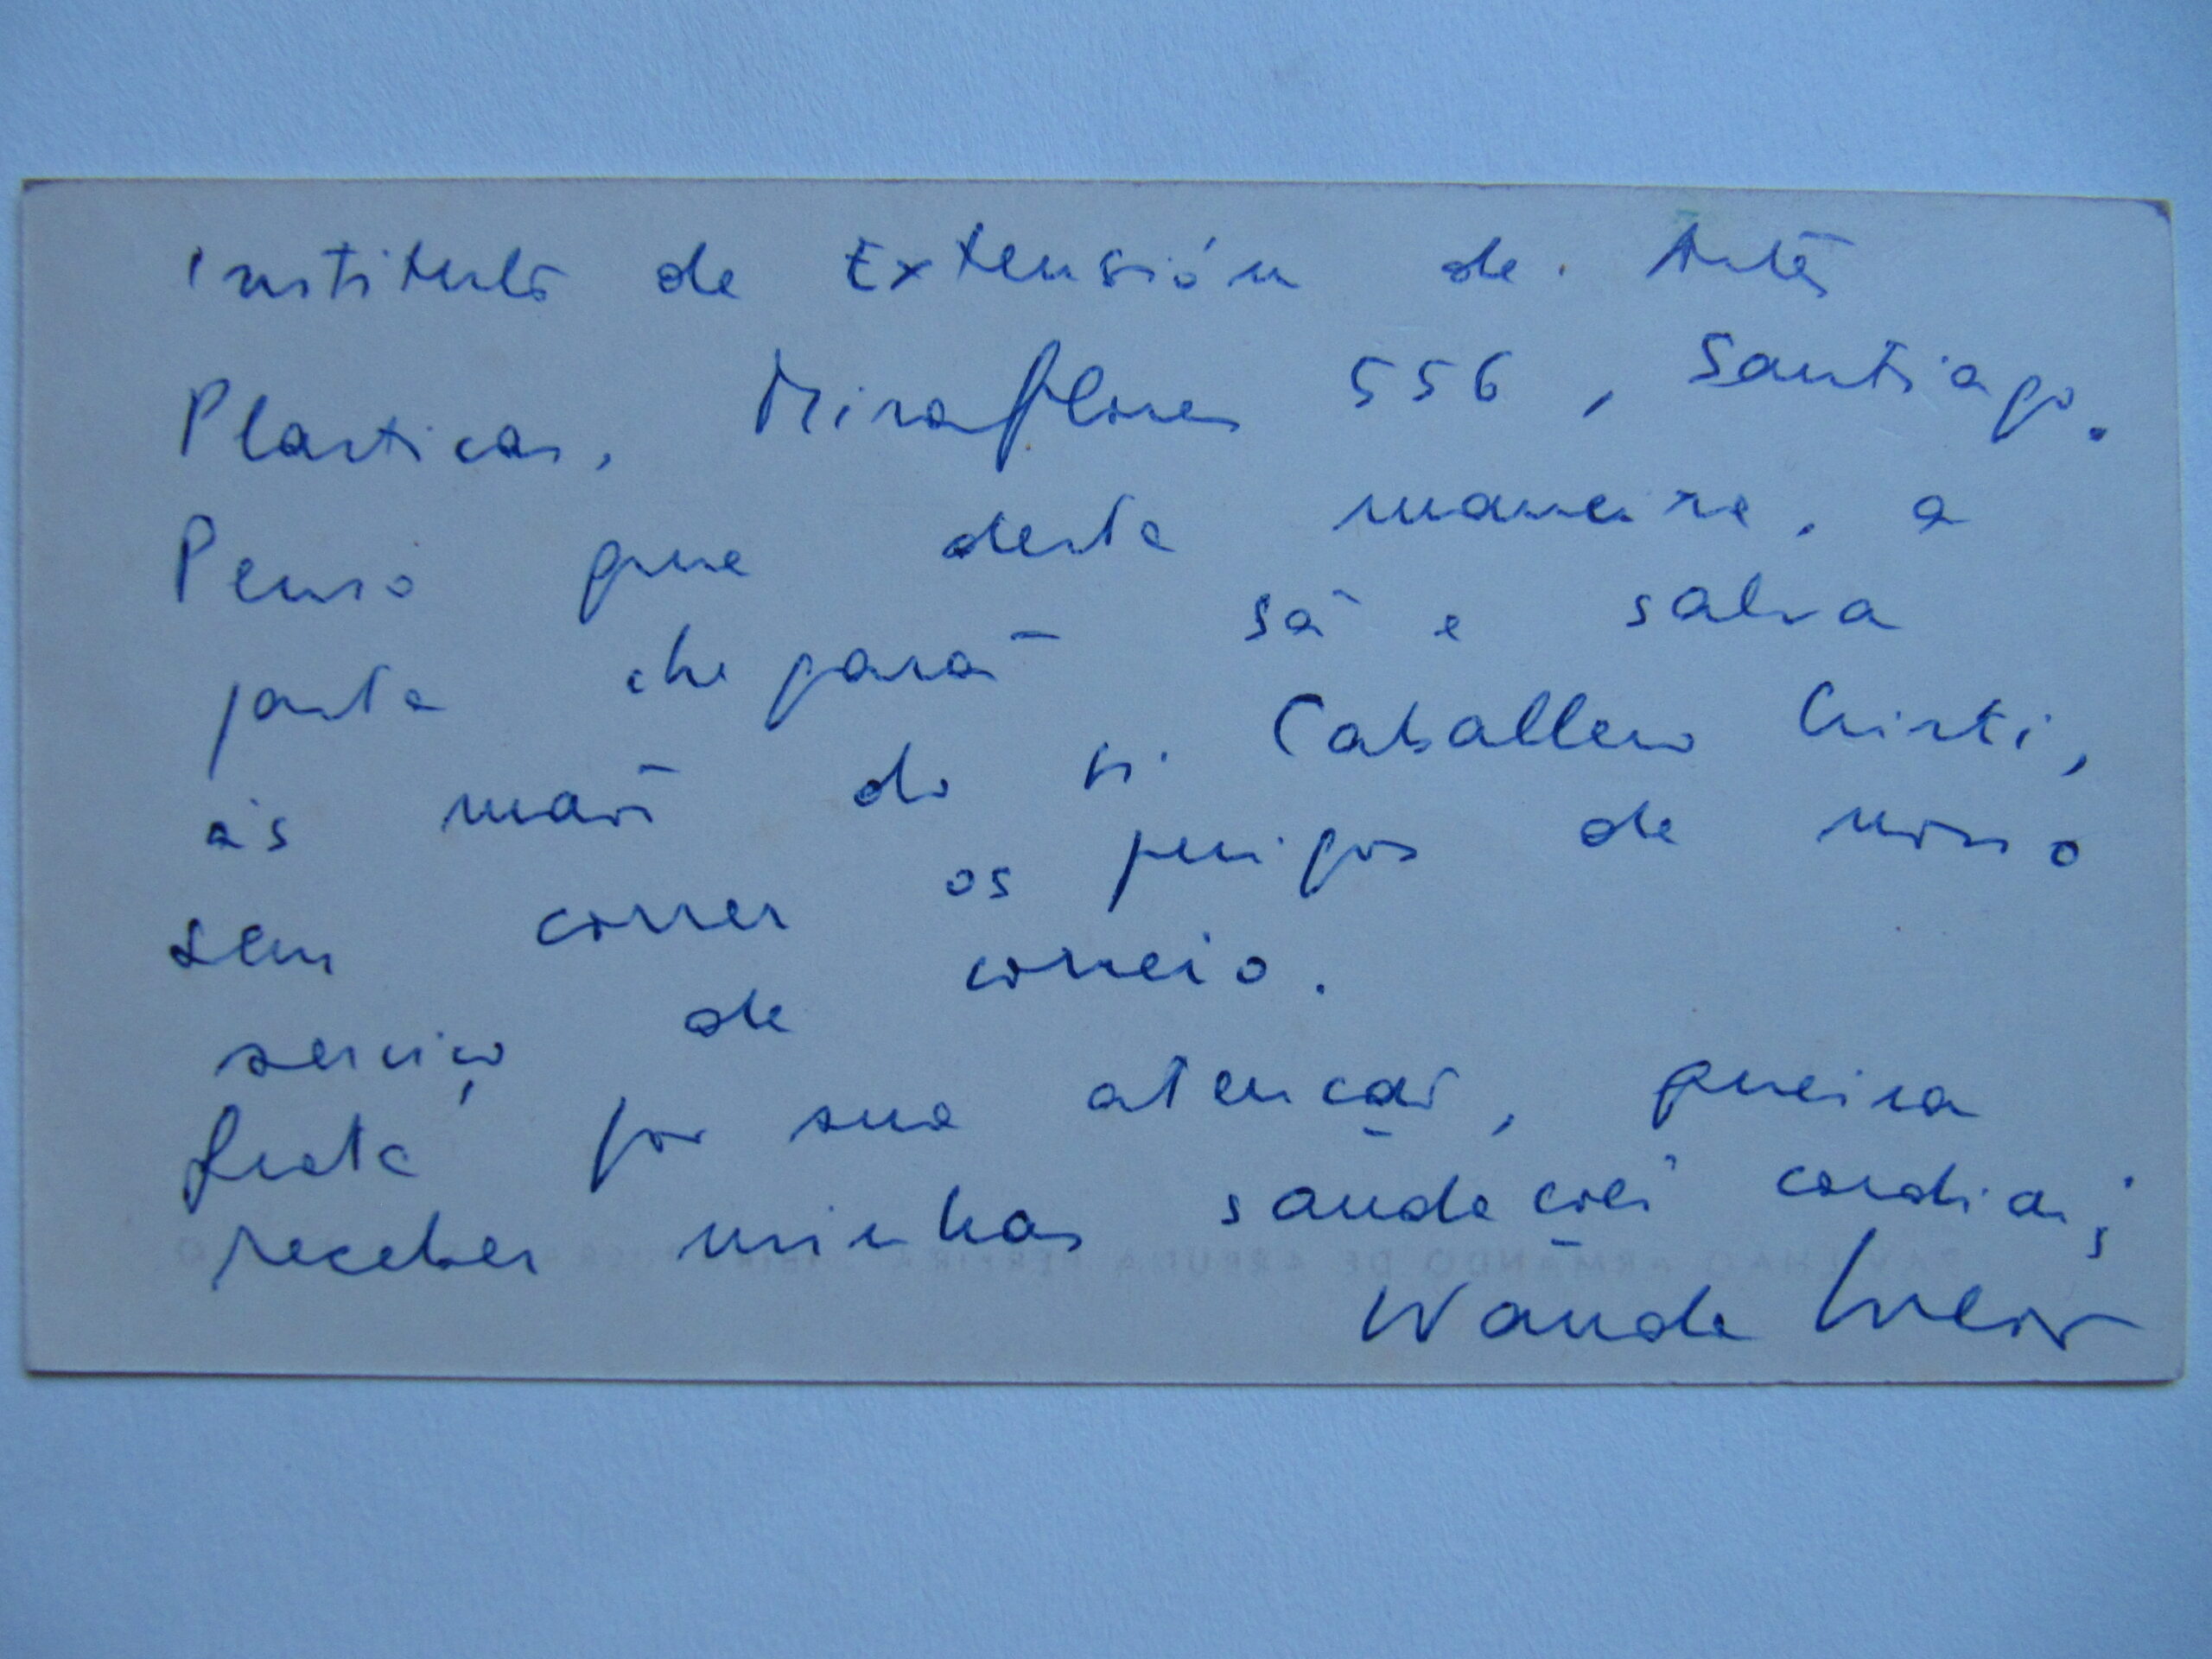 Instituto de Extensión de Artes
Plasticas, Miraflores 556, Santiago.
Penso que desta maneira, a
pasta chegará sã e salva
às mãos do sr. Caballero Cristi,
sem correr os perigos de nosso
serviço de correio.
Grata por sua atenção, queira
receber minhas saudações cordiais
Wanda Svevo